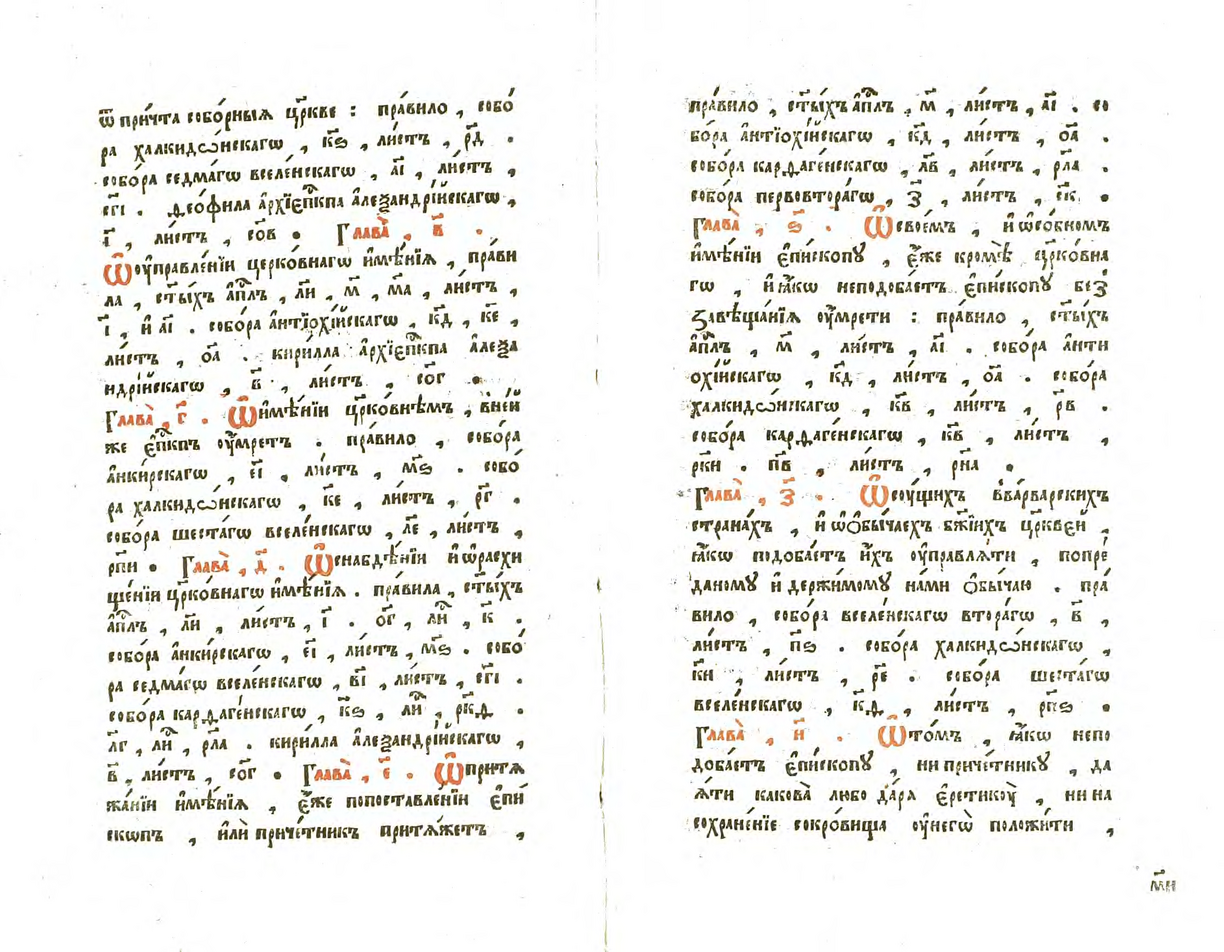 ѿ при́чта собо́рныѧ цр҃кве : пра́вило , собо́
ра халкидѡ́нскагѡ , к҃ѕ , ли́стъ , р҃д .
собо́ра седма́гѡ вселе́нскагѡ , а҃і , ли́стъ ,
с҃гі . ѳео́фила а҆рхїепⷭ҇кпа а҆леѯандрі́йскагѡ ,
г҃ , ли́стъ , с҃ов . Глава̀ , в҃ .
Ѿ оу҆правле́нїи церко́внагѡ и҆мѣ́нїѧ , пра́ви
ла , ст҃ы́хъ а҆пⷭ҇лъ , л҃и , м҃ , м҃а , ли́стъ ,
і҃ , и҆ а҃і . собо́ра а҆нтїохі́йскагѡ , к҃д , к҃е ,
ли́стъ , о҃а . кири́лла а҆рхїепⷭ҇кпа а҆леѯа
ндрі́йскагѡ , в҃ , ли́стъ , с҃ог .
Глава̀ , г҃ . Ѿ и҆мѣ́нїи цр҃ко́внѣмъ , вне́й
же е҆пⷭ҇кпъ оу҆́мретъ . пра́вило , собо́ра
а҆нки́рскагѡ , е҃і , ли́стъ , м҃ѕ . собо́
ра халкидѡ́нскагѡ , к҃е , ли́стъ , р҃г .
собо́ра шеста́гѡ вселе́нскагѡ , л҃е , ли́стъ ,
р҃пи . Глава̀ , д҃ . Ѿ снабдѣ́нїи и҆ ѡ҆ расхи
ще́нїи цр҃ко́внагѡ и҆мѣ́нїѧ . пра́вила , ст҃ы́хъ
а҆пⷭ҇лъ , л҃и , ли́стъ , і҃ . о҃г , лиⷭ҇ , к҃ .
собо́ра а҆нки́рскагѡ , е҃і , ли́стъ , м҃ѕ . собо́
ра седма́гѡ вселе́нскагѡ , в҃і , ли́стъ , с҃гі .
собо́ра карѳаге́нскагѡ , к҃ѕ , лиⷭ҇ , р҃кѳ .
л҃г , лиⷭ҇ , р҃ла . кири́лла а҆леѯандрі́йскагѡ ,
в҃ , ли́стъ , с҃ог . Глава̀ , е҃ . Ѿ притѧ
жа́нїи и҆мѣ́нїѧ , є҆́же попоставле́нїи є҆пи́
скопъ , и҆лѝ приче́тникъ притѧ́жетъ ,
пра́вило , ст҃ы́хъ а҆пⷭ҇лъ , м҃ , ли́стъ , а҃і . со
бо́ра а҆нтїохі́йскагѡ , к҃д , ли́стъ , о҃а .
собо́ра карѳаге́нскагѡ , л҃в , ли́стъ , р҃ла .
собо́ра первовтора́гѡ , з҃ , ли́стъ , с҃к .
Глава̀ , ѕ҃ . Ѿ свое́мъ , и҆ ѡ҆со́бномъ
и҆мѣ́нїи є҆пи́скопꙋ , є҆́же кромѣ̀ цр҃ко́вна
гѡ , и҆ ꙗ҆́кѡ неподоба́етъ є҆пи́скопꙋ без
завѣща́нїѧ оу҆мре́ти : пра́вило , ст҃ы́хъ
а҆пⷭ҇лъ , м҃ , ли́стъ , а҃і . собо́ра а҆нти
охі́йскагѡ , к҃д , ли́стъ , о҃а . собо́ра
халкидѡ́нскагѡ , к҃в , ли́стъ , р҃в .
собо́ра карѳаге́нскагѡ , к҃в , ли́стъ ,
р҃ки . п҃в , ли́стъ , р҃на .
Глава̀ , з҃ . Ѿ су́щихъ вва́рварскихъ
страна́хъ , и҆ ѡ҆ ѻ҆бы́чаехъ бж҃їихъ цр҃кве́й ,
ꙗ҆́кѡ подоба́етъ и҆́хъ оу҆правлѧ́ти , попре́
даному и҆ держи́мому на́ми ѻ҆бы́чаю . пра́
вило , собо́ра вселе́нскагѡ втора́гѡ , в҃ ,
ли́стъ , п҃ѕ . собо́ра халкидѡ́нскагѡ ,
к҃и , ли́стъ , р҃е . собо́ра шеста́гѡ
вселе́нскагѡ , к҃ѳ , ли́стъ , р҃пѕ .
Глава̀ , и҃ . Ѿ то́мъ , ꙗ҆́кѡ непо
доба́етъ є҆пи́скопꙋ , ни приче́тникꙋ , да
ѧ҆́ти какова̀ любо да́ра є҆ретикоу̀ , ни на
сохране́нїе сокро́вища оу҆ негѡ̀ положи́ти ,
м҃и